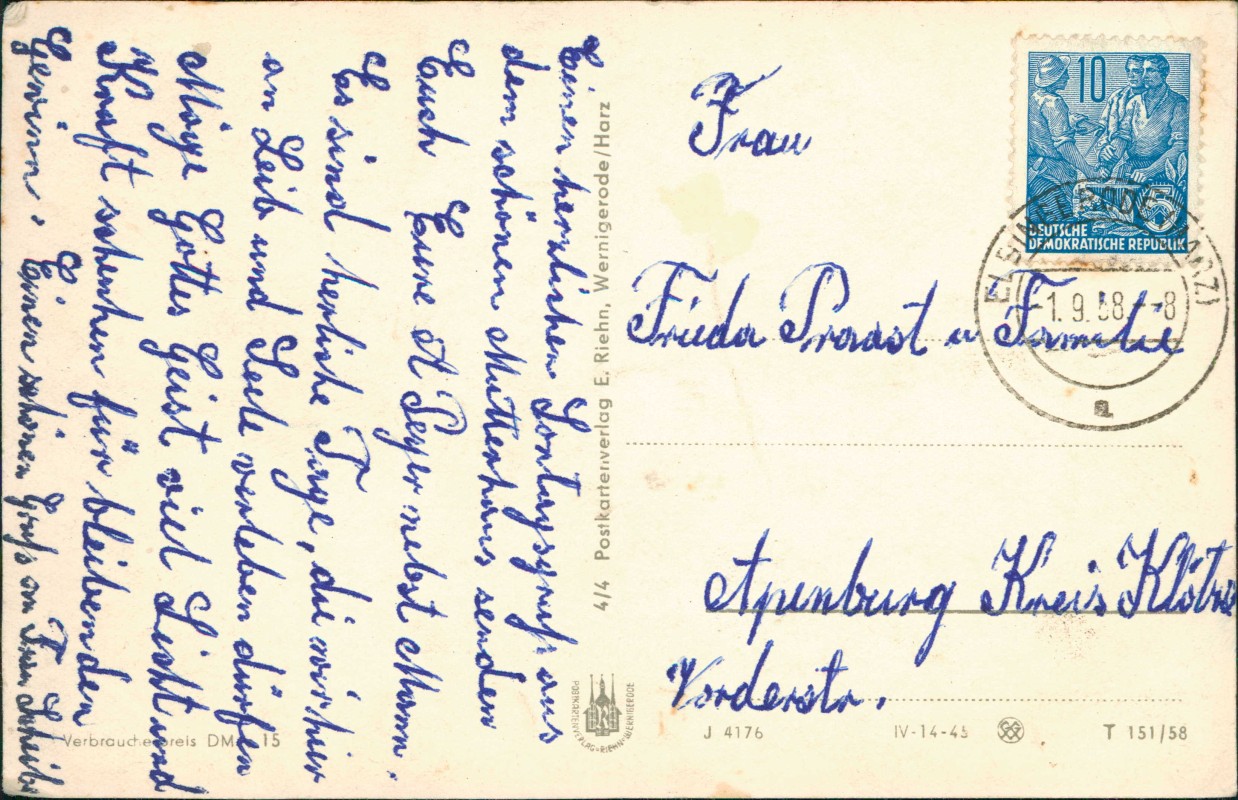 Einen herzlichen Sontagsgruß aus
dem schönen Mutterhaus senden
Euch Eure A Peyer nebst Mann.
Es sind herliche Tage, die wir hier
an Leib und Seele verleben dürfen
Möge Gottes Geist viel Licht und
Kraft schenken für bleibenden
Gewinn. Einen schönen Gruß an Frau Scheib
Verbraucherpreis DM 15
4/4 Postkartenverlag E. Riehn, Wernigerode/Harz
POSTKARTENVERLAG-RIEHN-WERNIGERODE
Frau
Frieda Praast u Familie
Apenburg Kreis Klötze
Vorderstr.
J 4176 IV-14-45 T 151/58
10
5
DEUTSCHE
DEMOKRATISCHE REPUBLIK
-1.9.58.--8
a